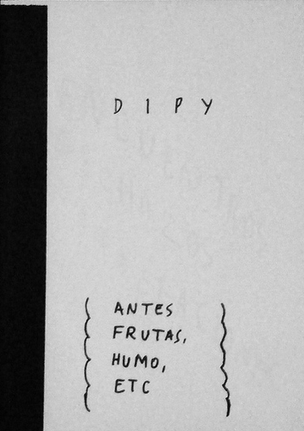 DIPY
ANTES
FRUTAS,
HUMO,
ETC